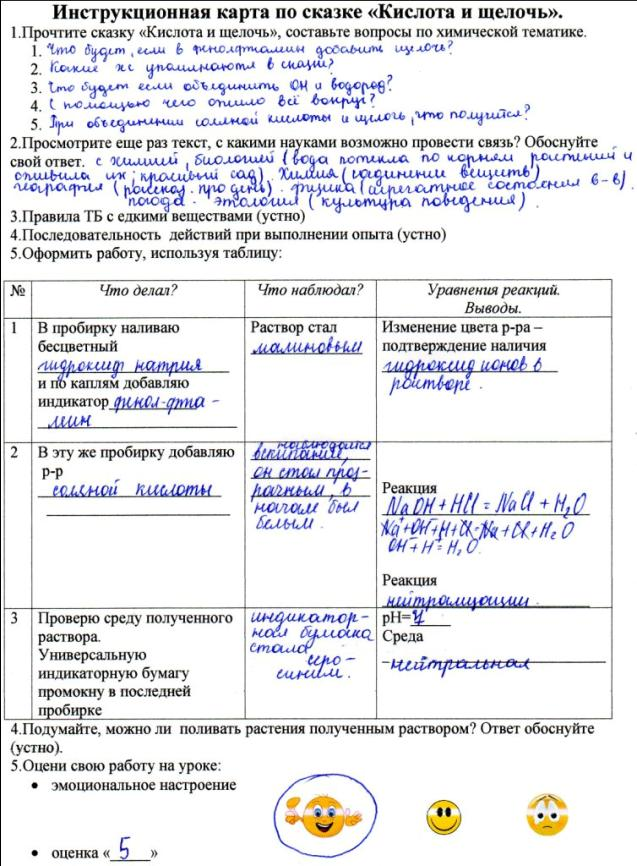 Инструкционная карта по сказке «Кислота и щелочь».
1.Прочтите сказку «Кислота и щелочь», составьте вопросы по химической тематике.
1. Что будет, если в фенолфталеин добавить щелочь?
2. Какие же упоминаются в сказки?
3. Что будет если объединить OH и водород?
4. С помощью чего ожило всё вокруг?
5. При объединении соляной кислоты и щелочь, что получится?
2.Просмотрите еще раз текст, с какими науками возможно провести связь? Обоснуйте
свой ответ. с химией, биологией (вода потекла по корням растений и
оживила их; красивый сад). Химия (соединение веществ)
география (рассказ. про день). физика (агрегатное состояния в-в).
погода. этология (культура поведения).
3.Правила ТБ с едкими веществами (устно)
4.Последовательность действий при выполнении опыта (устно)
5.Оформить работу, используя таблицу:
№ Что делал? Что наблюдал? Уравнения реакций.
Выводы.
1 В пробирку наливаю
бесцветный
гидроксид натрия
и по каплям добавляю
индикатор финол-фта-
леин
Раствор стал
малиновым
Изменение цвета р-ра –
подтверждение наличия
гидроксид ионов в
растворе.
2 В эту же пробирку добавляю
р-р
соляной кислоты
наблюдался
вскипание,
он стал проз-
рачным, в
начале был
белым.
Реакция
NaOH + HCl = NaCl + H2O
Na+OH+H+Cl=Na+Cl+H2O
OH+H=H2O.
Реакция
нейтрализации.
3 Проверю среду полученного
раствора.
Универсальную
индикаторную бумагу
промокну в последней
пробирке
индикатор-
ная бумака
стала
серо-
синим.
pH=
Среда
нейтральная
4.Подумайте, можно ли поливать растения полученным раствором? Ответ обоснуйте
(устно).
5.Оцени свою работу на уроке:
• эмоциональное настроение
• оценка « 5 »